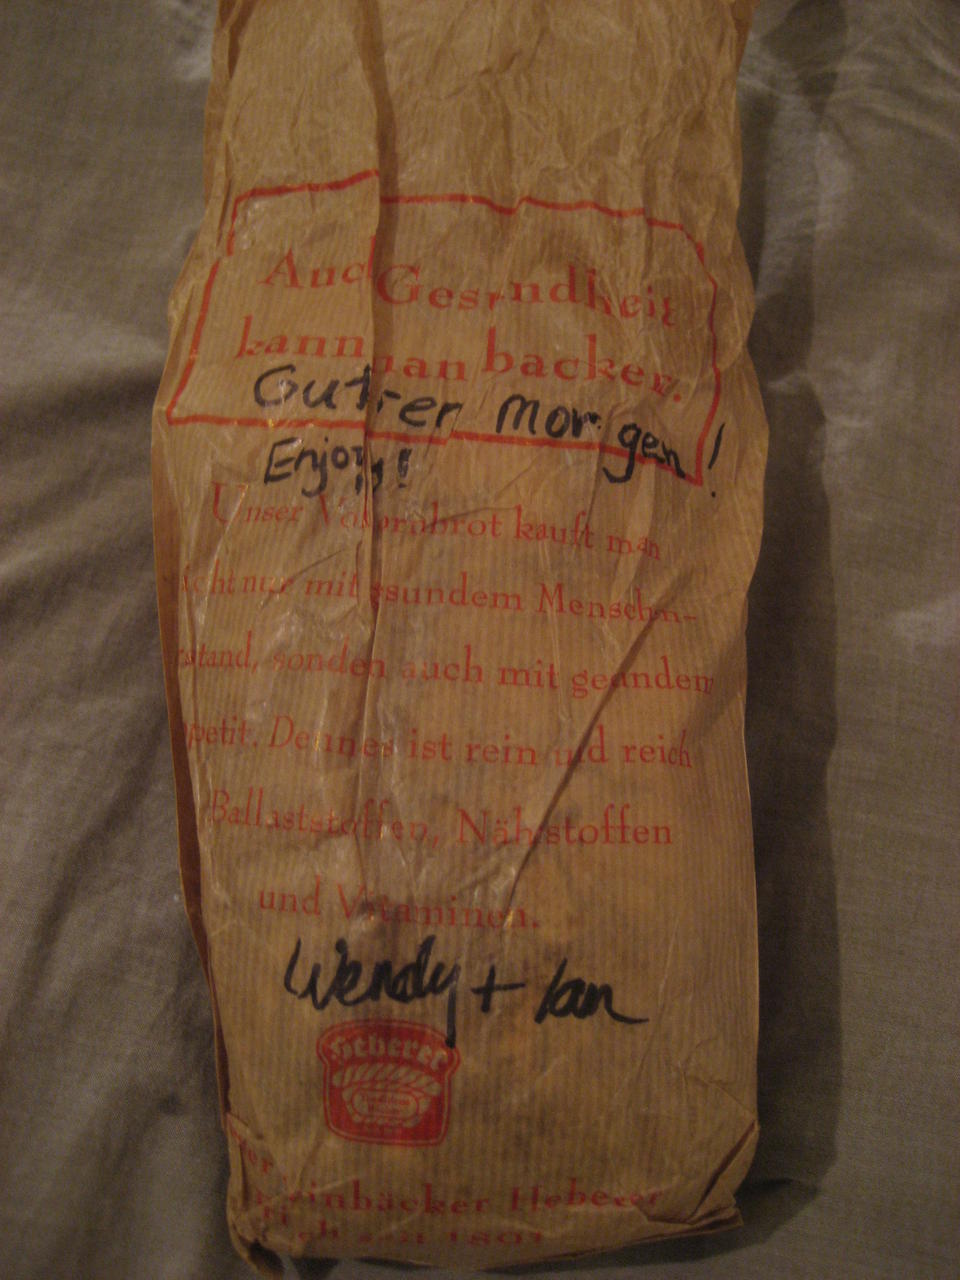 Auch Gesundheit
kann man backen.
Guten Morgen!
Enjoy!
Unser Vollkornbrot kauft man
nicht nur mit gesundem Menschen-
verstand, sondern auch mit gesundem
Appetit. Denn es ist rein und reich
Ballaststoffen, Nährstoffen
und Vitaminen.
Wendy + Ian
Heberer
Heberer
1891